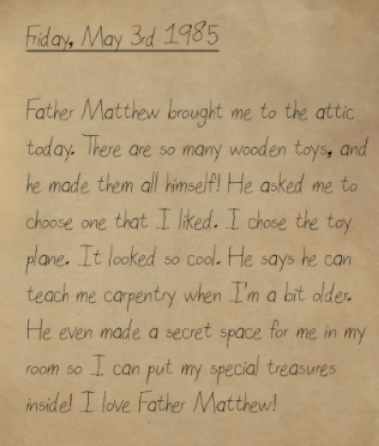 Friday, May 3rd 1985
Father Matthew brought me to the attic
today. There are so many wooden toys, and
he made them all himself! He asked me to
choose one that I liked. I chose the toy
plane. It looked so cool. He says he can
teach me carpentry when I'm a bit older.
He even made a secret space for me in my
room so I can put my special treasures
inside! I love Father Matthew!